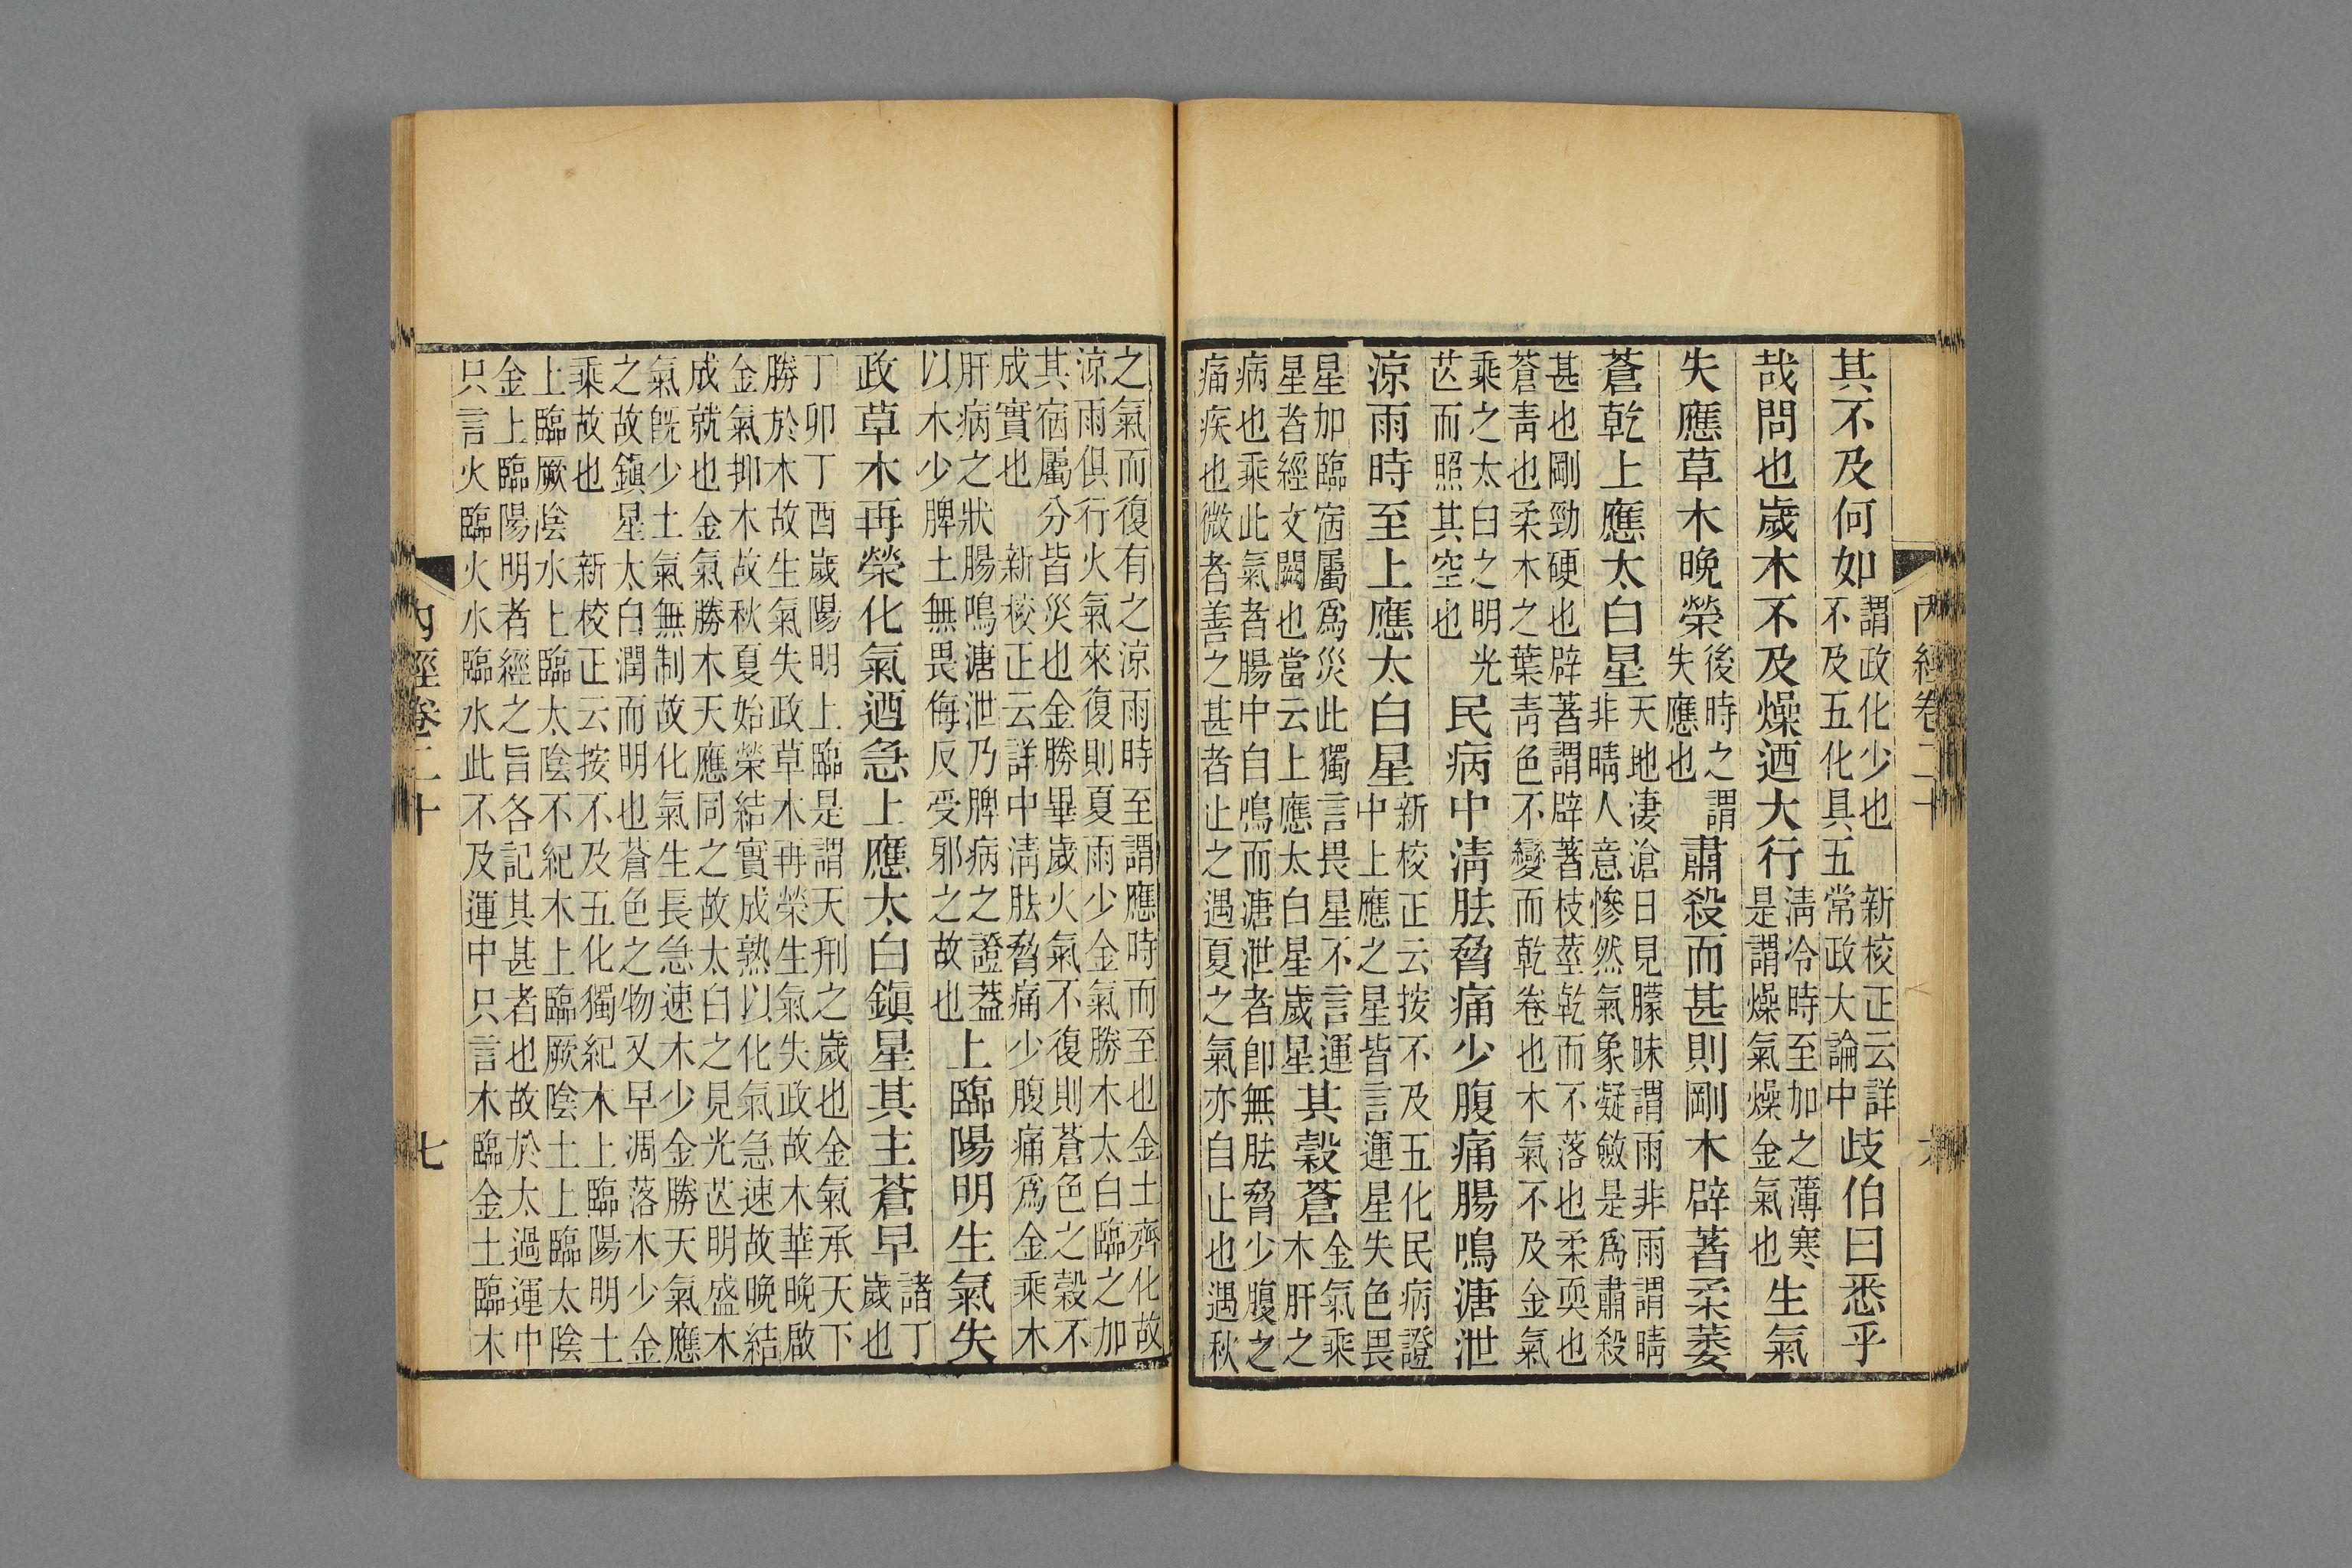 內經卷二十 六
其不及何如謂政化少也 新校正云詳
不及五化具五常政大論中歧伯曰悉乎
哉問也歲木不及燥迺大行清冷時至加之薄寒
是謂燥氣燥金氣也生氣
失應草木晚榮後時之謂
失應也肅殺而甚則剛木辟著柔萎
蒼乾上應太白星天地淒滄日見朦昧謂雨非雨謂晴
非晴人意慘然氣象凝斂是爲肅殺
甚也剛勁硬也辟著謂辟著枝莖乾而不落也柔耎也
蒼青也柔木之葉青色不變而乾卷也木氣不及金氣
乘之太白之明光
芒而照其空也民病中清胠脅痛少腹痛腸鳴溏泄
涼雨時至上應太白星新校正云按不及五化民病證
中上應之星皆言運星失色畏
星加臨宿屬爲災此獨言畏星不言運
星者經文闕也當云上應太白星歲星其穀蒼金氣乘
木肝之
病也乘此氣者腸中自鳴而溏泄者卽無胠脅少腹之
痛疾也微者善之甚者止之遇夏之氣亦自止也遇秋
之氣而復有之涼雨時至謂應時而至也金土齊化故
涼雨俱行火氣來復則夏雨少金氣勝木太白臨之加
其宿屬分皆災也金勝畢歲火氣不復則蒼色之穀不
成實也 新校正云詳中清胠脅痛少腹痛爲金乘木
肝病之狀腸鳴溏泄乃脾病之證蓋
以木少脾土無畏侮反受邪之故也上臨陽明生氣失
政草木再榮化氣迺急上應太白鎮星其主蒼早諸丁
歲也
丁卯丁酉歲陽明上臨是謂天刑之歲也金氣承天下
勝於木故生氣失政草木再榮生氣失政故木華晚啟
金氣抑木故秋夏始榮結實成熟以化氣急速故晚結
成就也金氣勝木天應同之故太白之見光芒明盛木
氣旣少土氣無制故化氣生長急速木少金勝天氣應
之故鎮星太白潤而明也蒼色之物又早凋落木少金
乘故也 新校正云按不及五化獨紀木上臨陽明土
上臨厥陰水上臨太陰不紀木上臨厥陰土上臨太陰
金上臨陽明者經之旨各記其甚者也故於太過運中
只言火臨火水臨水此不及運中只言木臨金土臨木
內經卷二十 七